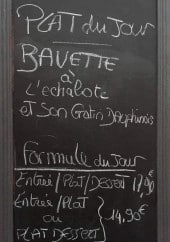 PLAT du Jour
BAVETTE
à
L'echalote
et Son Gratin Dauphinois
Formule du Jour
Entrée/Plat/Dessert 17,90€
Entrée/Plat
ou
PLAT DESSERT
14,90€